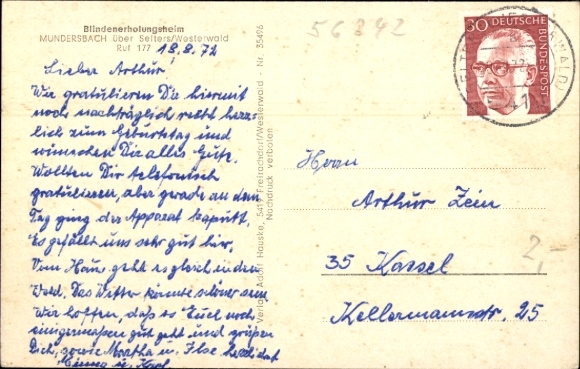 Blindenerholungsheim
MUNDERSBACH über Selters/Westerwald
Ruf 177
18.8.72
Lieber Arthur!
Wir gratulieren Dir hiermit
noch nachträglich recht herz-
lich zum Geburtstag und
wünschen Dir alles Gute.
Wollten Dir telefonisch
gratulieren, aber gerade an dem
Tag ging der Apparat kaputt.
Es gefällt uns sehr gut hier,
Vom Haus geht es gleich in den
Wald. Das Wetter könnte schöner sein.
Wir hoffen, daß es Euch noch
einigermaßen gut geht und grüßen
Dich, sowie Martha u. Ilse herzlichst
Verlag Adolf Hauske, 5419 Freirachdorf/Westerwald - Nr. 35496
Nachdruck verboten
56342
30 DEUTSCHE
BUNDESPOST
Herrn
Arthur Zein
35 Kassel
Kellermannstr. 25
2,-